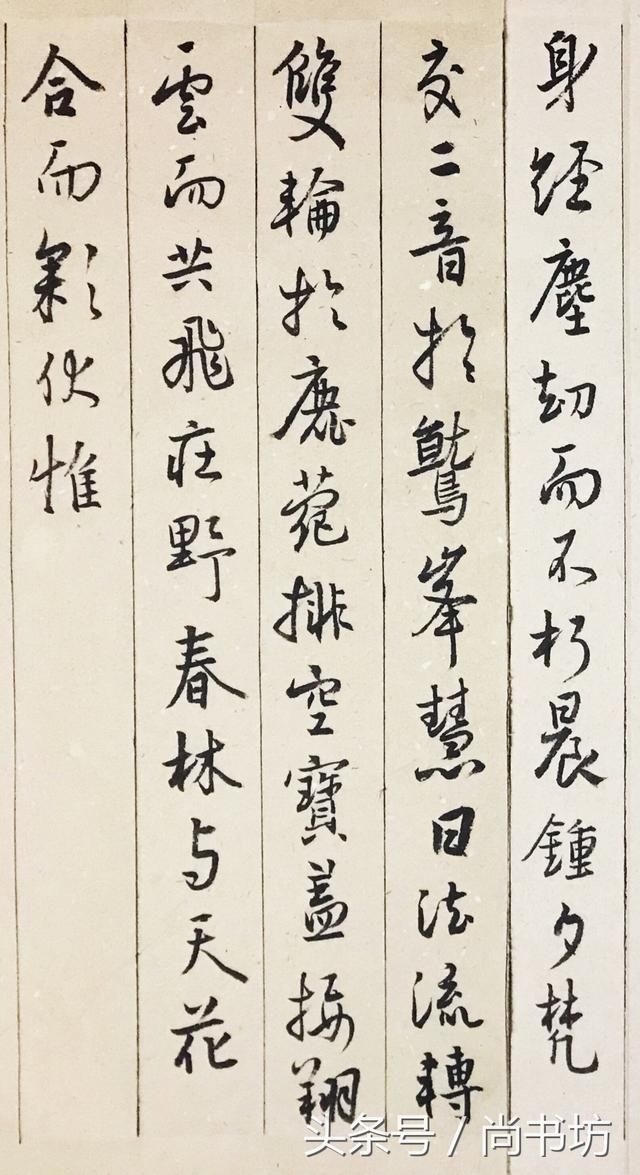 身經塵劫而不朽晨鍾夕梵
交二音於鷲峯慧日法流轉
雙輪於鹿菀排空寶蓋接翔
雲而共飛庄野春林与天花
合而彩伏惟
头条号 / 尚书坊